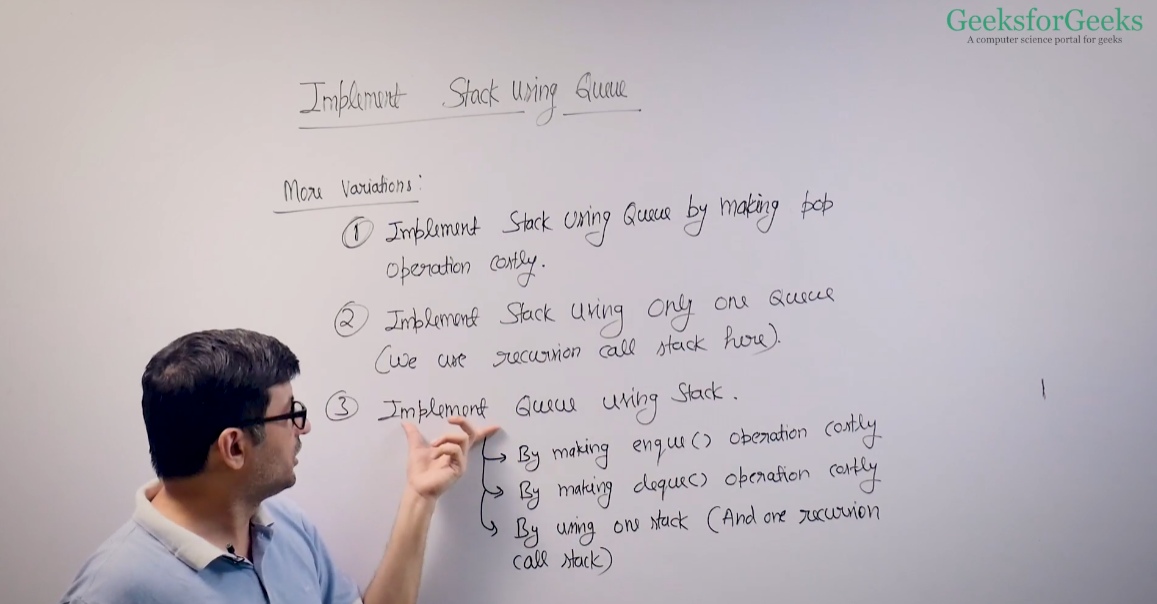 GeeksforGeeks
A computer science portal for geeks
Implement Stack Using Queue
More Variations:
1 Implement Stack Using Queue by making pop
operation costly.
2 Implement Stack Using only one Queue
(We use recursion call stack here).
3 Implement Queue using Stack.
By making enque() operation costly
By making deque() operation costly
By using one stack (And one recursion
call stack)